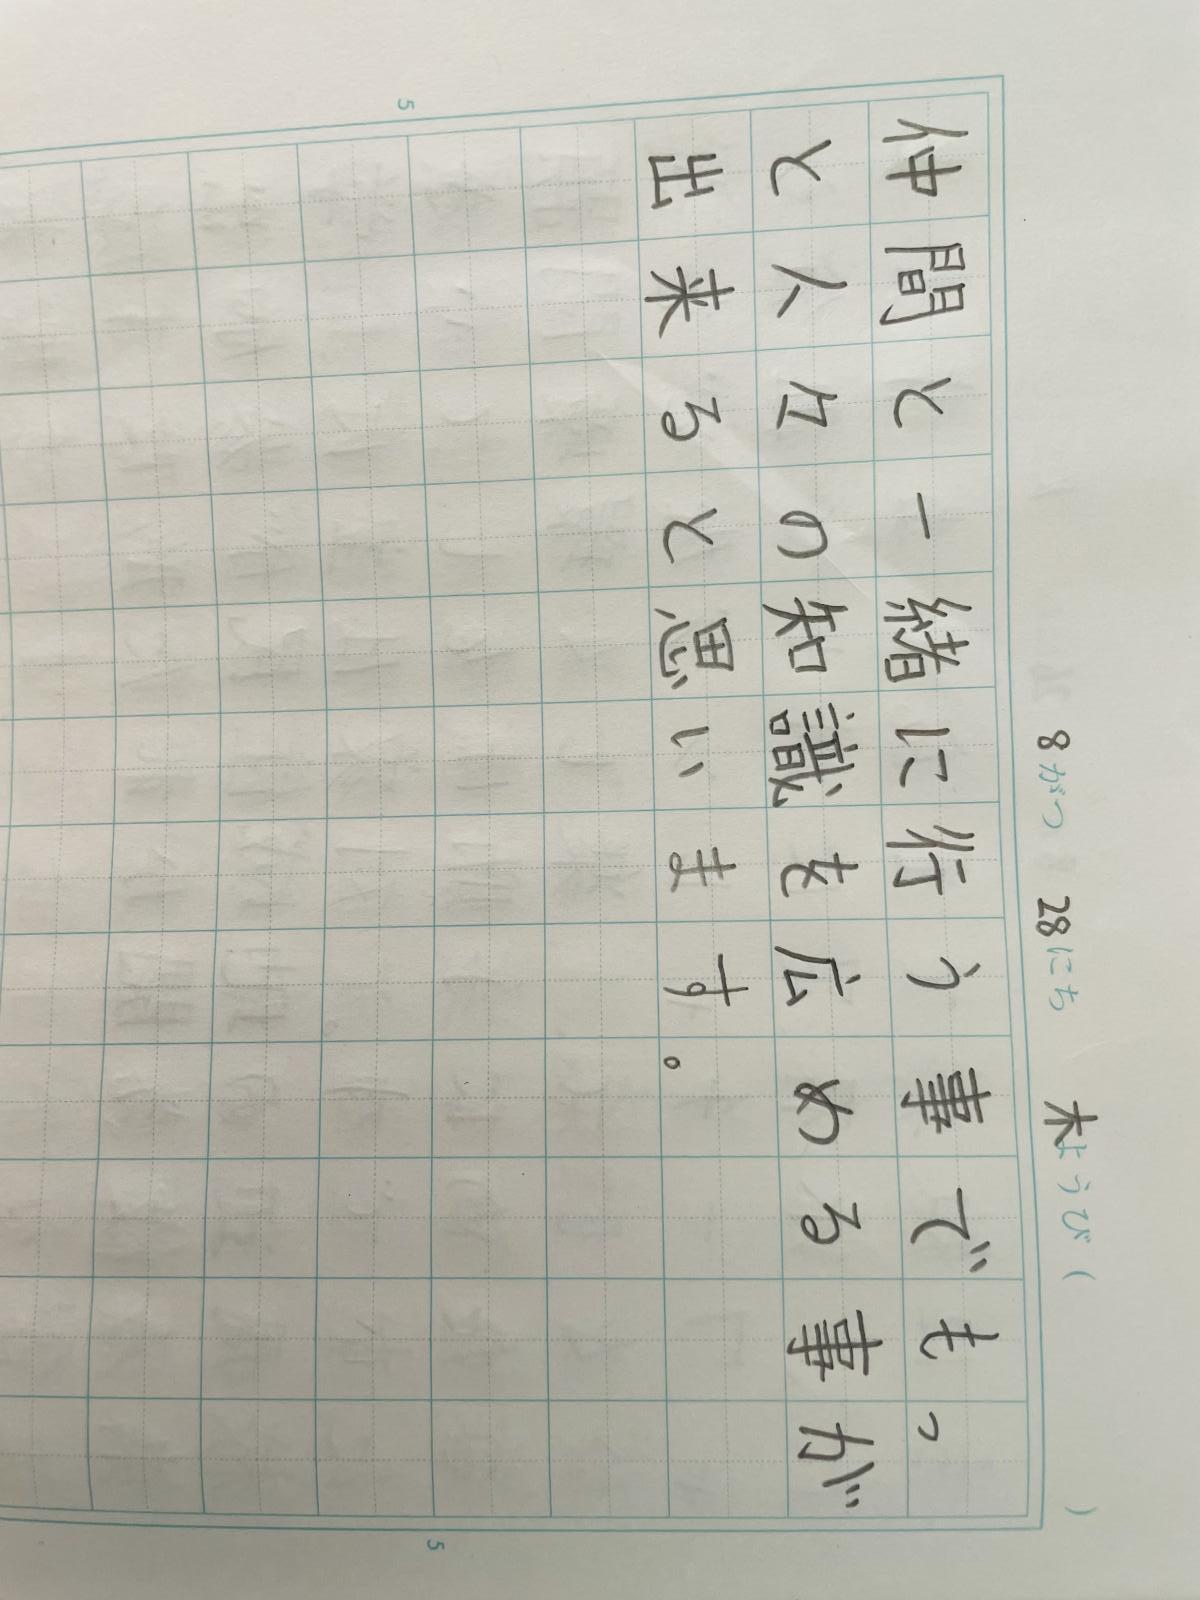 8がつ 28にち 木ようび ( )
仲間と一緒に行う事でもっ
と人々の知識を広める事が
出来ると思います。
5
5